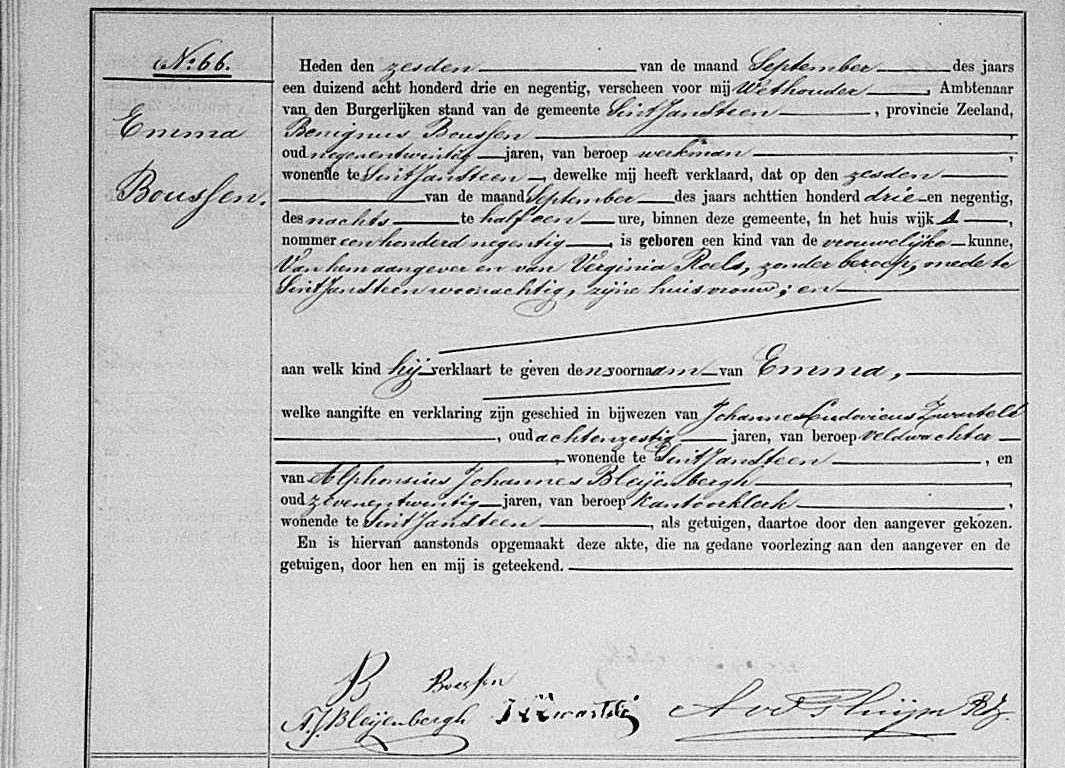 No. 66.
Emma
Boussen.
Heden den zesden van de maand September des jaars
een duizend acht honderd drie en negentig, verscheen voor mij Wethouder, Ambtenaar
van den Burgerlijken stand van de gemeente Sint Jansteen, provincie Zeeland,
Benignus Boussen,
oud negenentwintig jaren, van beroep werkman,
wonende te Sint Jansteen, dewelke mij heeft verklaard, dat op den zesden
van de maand September des jaars achttien honderd drie en negentig,
des nachts te half een ure, binnen deze gemeente, in het huis wijk A,
nommer een honderd negentig, is geboren een kind van de vrouwelijke kunne,
Van hem aangever en van Virginia Roels, zonder beroep, mede te
Sint Jansteen woonachtig, zijne huisvrouw; en
aan welk kind hij verklaart te geven den voornaam van Emma,
welke aangifte en verklaring zijn geschied in bijwezen van Johannes Ludovicus Zwartelé
, oud achtenzestig jaren, van beroep veldwachter
, wonende te Sint Jansteen, en
van Alphonsius Johannes Bleijenbergh,
oud zevenentwintig jaren, van beroep kantoorklerk,
wonende te Sint Jansteen, als getuigen, daartoe door den aangever gekozen.
En is hiervan aanstonds opgemaakt deze akte, die na gedane voorlezing aan den aangever en de
getuigen, door hen en mij is geteekend.
B Boussen
A. J. Bleijenbergh